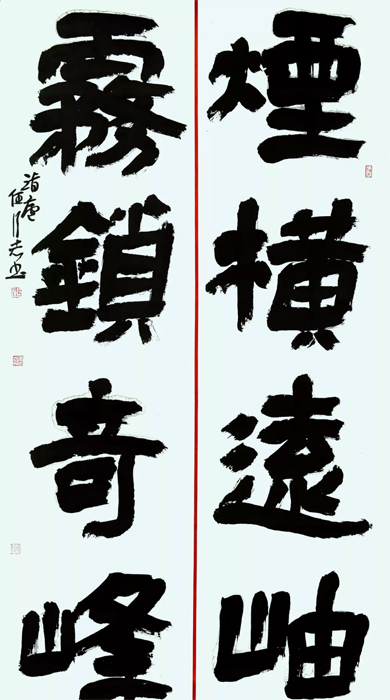 煙橫遠岫
霧鎖奇峰